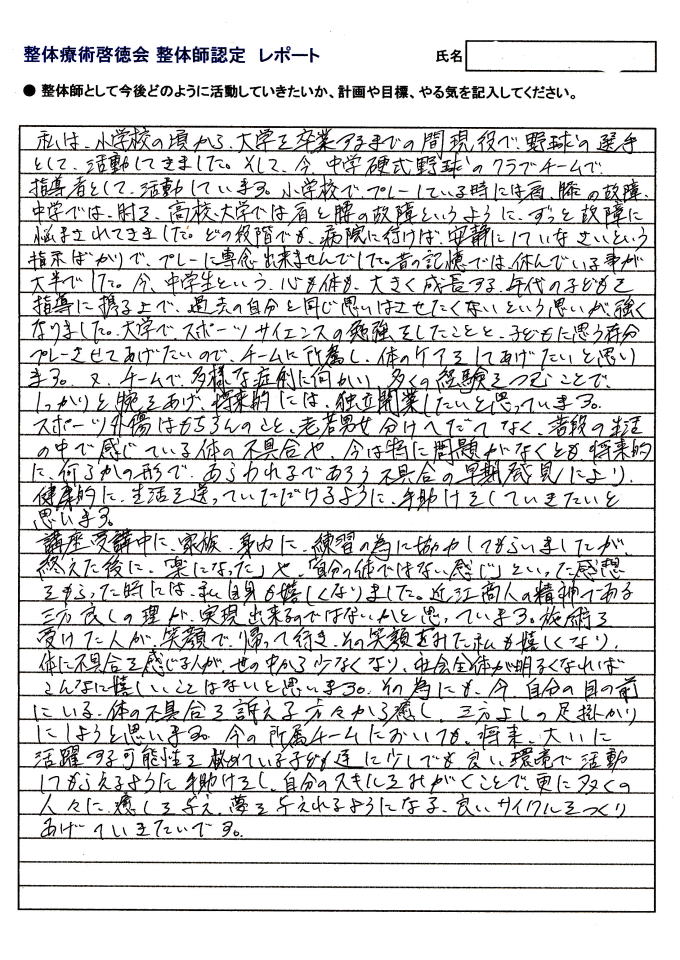 整体療術啓徳会 整体師認定 レポート
氏名
● 整体師として今後どのように活動していきたいか、計画や目標、やる気を記入してください。
私は、小学校の頃から、大学を卒業するまでの間現役で、野球の選手
として、活動してきました。そして、今、中学硬式野球のクラブチームで、
指導者として、活動しています。小学校で、プレーしている時には肩、膝の故障、
中学では、肘を、高校、大学では肩と腰の故障というように、ずっと故障に
悩まされてきました。どの段階でも、病院に行けば、安静にしていなさいという
指示ばかりで、プレーに専念出来ませんでした。昔の記憶では、休んでいる事が
大半でした。今、中学生という、心も体も、大きく成長する年代の子どもを
指導に携る上で、過去の自分と同じ思いはさせたくないという思いが、強く
なりました。大学で、スポーツサイエンスの勉強をしたことと、子どもに思う存分
プレーさせてあげたいので、チームに所属し、体のケアをしてあげたいと思い
ます。又、チームで、多様な症例に向かい、多くの経験をつむことで、
しっかりと腕をあげ、将来的には、独立開業したいと思っています。
スポーツ外傷はもちろんのこと、老若男女分けへだてなく、普段の生活
の中で感じている体の不具合や、今は特に問題がなくとも、将来的
に、何らかの形で、あらわれるであろう不具合の早期発見により、
健康的に、生活を送っていただけるように、手助けをしていきたいと
思います。
講座受講中に、家族、身内に、練習の為に協力してもらいましたが、
終えた後に、「楽になった」や「自分の体ではない感じ」といった感想
をもらった時には、私自身も嬉しくなりました。近江商人の精神である
三方良しの理が、実現出来るのではないかと思っています。施術を
受けた人が、笑顔で、帰って行き、その笑顔をみた私も嬉しくなり、
体に不具合を感じる人が、世の中から少なくなり、社会全体が明るくなれば
こんなに嬉しいことはないと思います。その為にも、今、自分の目の前
にいる、体の不具合を訴える方々から癒し、三方よしの足掛かり
にしようと思います。今の所属チームにおいても、将来、大いに
活躍する可能性を秘めている子ども達に少しでも良い環境で活動
してもらえるように手助けをし、自分のスキルをみがくことで、更に多くの
人々に、癒しを与え、夢を与えれるようになる、良いサイクルをつくり
あげていきたいです。